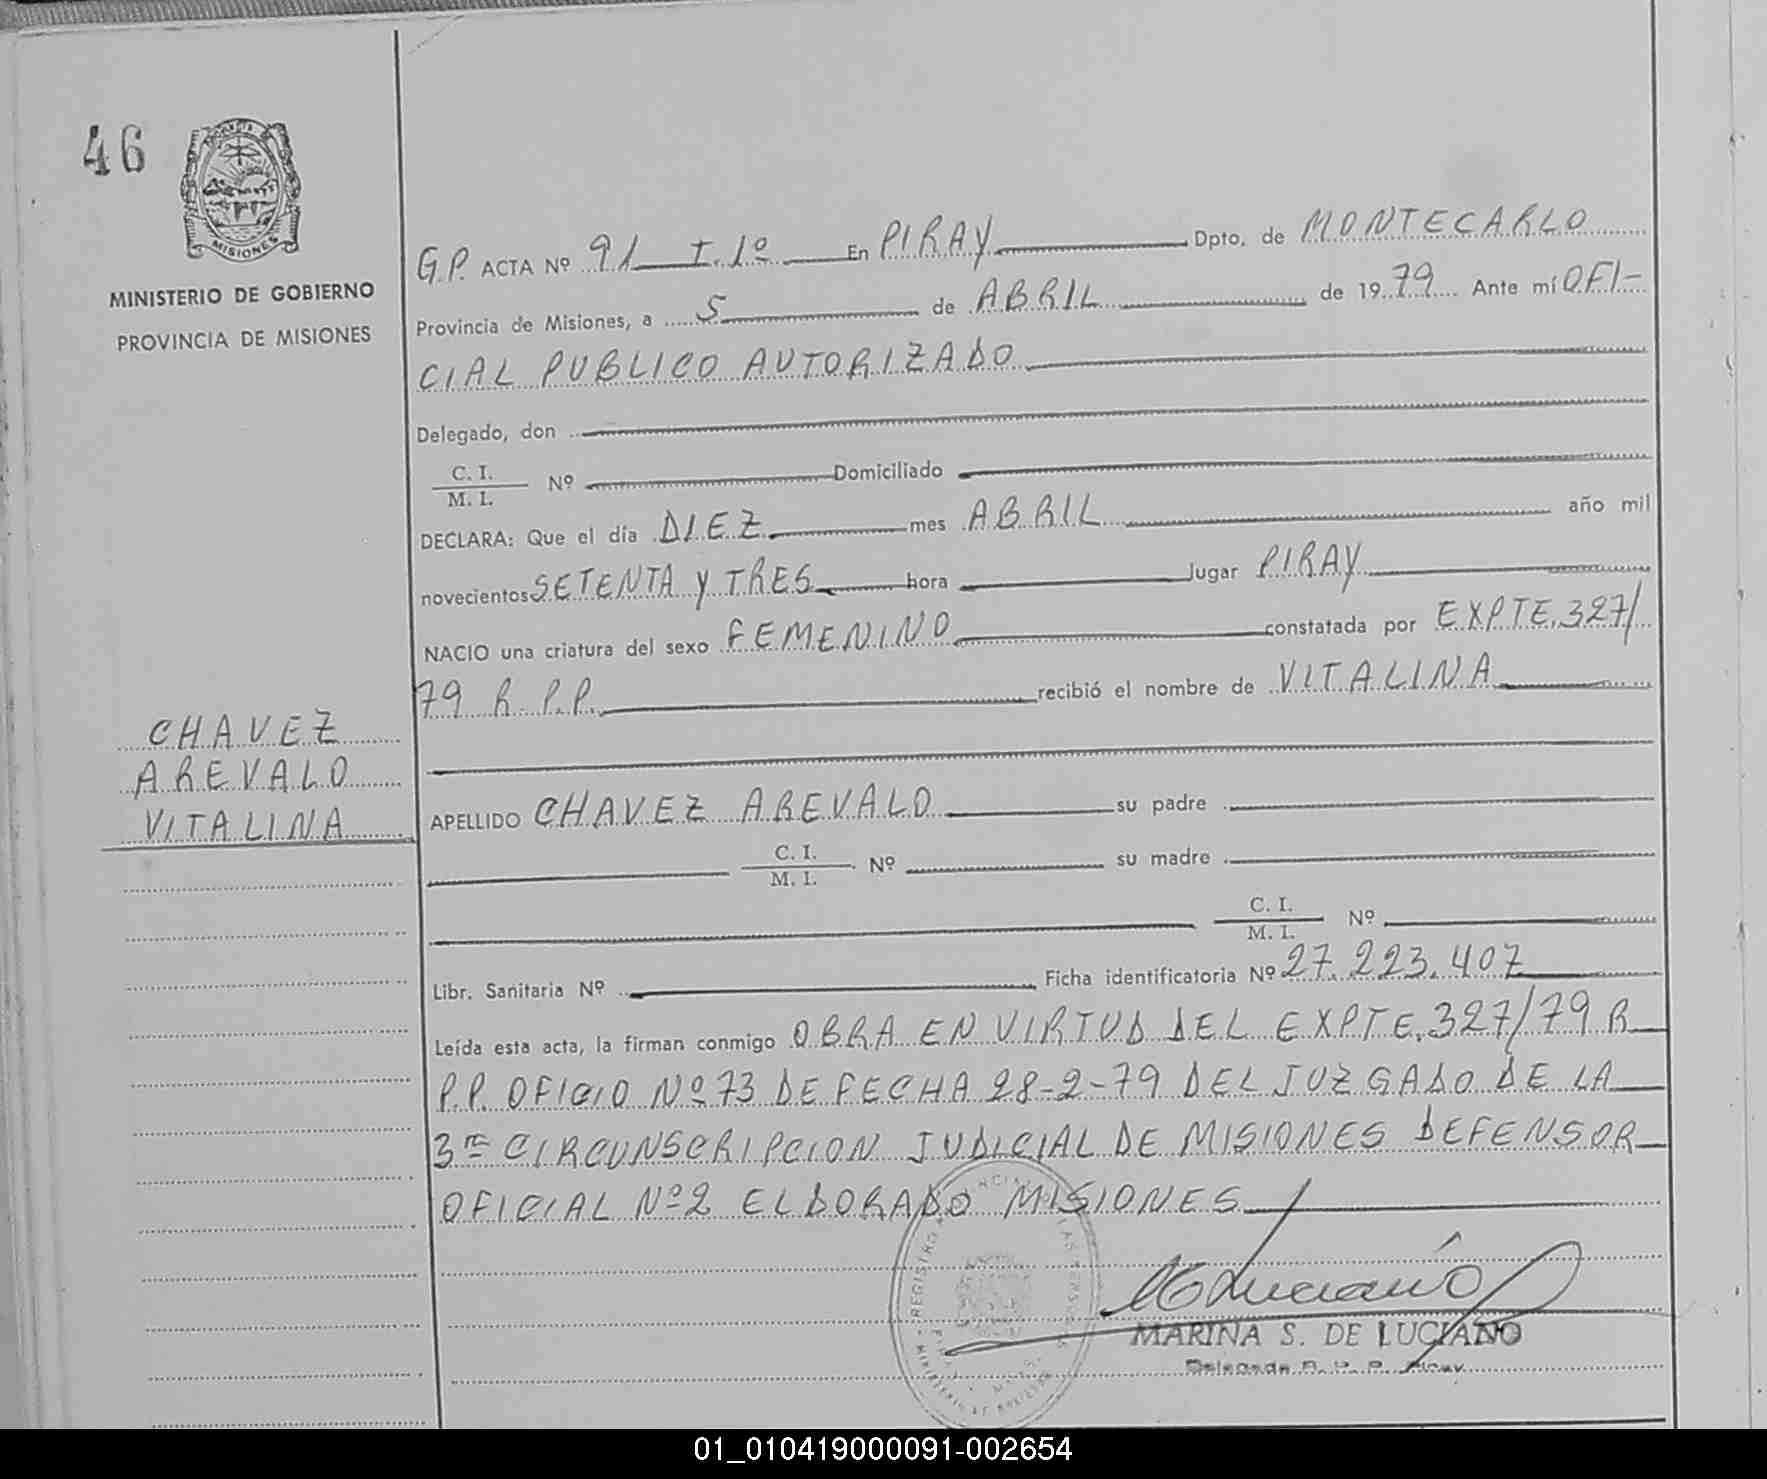 46
MISIONES
MINISTERIO DE GOBIERNO
PROVINCIA DE MISIONES
G.P. ACTA Nº 91 T. 1º En PIRAY Dpto. de MONTECARLO
Provincia de Misiones, a 5 de ABRIL de 1979 Ante mí OFI-
CIAL PUBLICO AUTORIZADO
Delegado, don
C. I. / M. I. Nº Domiciliado
DECLARA: Que el día DIEZ mes ABRIL año mil
novecientos SETENTA Y TRES hora lugar PIRAY
NACIO una criatura del sexo FEMENINO constatada por EXPTE. 327/
79 R. P.P. recibió el nombre de VITALINA
CHAVEZ
AREVALO
VITALINA
APELLIDO CHAVEZ AREVALO su padre
C. I. / M. I. Nº su madre
C. I. / M. I. Nº
Libr. Sanitaria Nº Ficha identificatoria Nº 27.223.407
Leída esta acta, la firman conmigo OBRA EN VIRTUD DEL EXPTE. 327/79 R
P.P. OFICIO Nº 73 DE FECHA 28-2-79 DEL JUZGADO DE LA
3ra CIRCUNSCRIPCION JUDICIAL DE MISIONES DEFENSOR
OFICIAL Nº 2 ELDORADO MISIONES
MARINA S. DE LUCIANO
Delegada R. P. P. Piray
01_010419000091-002654